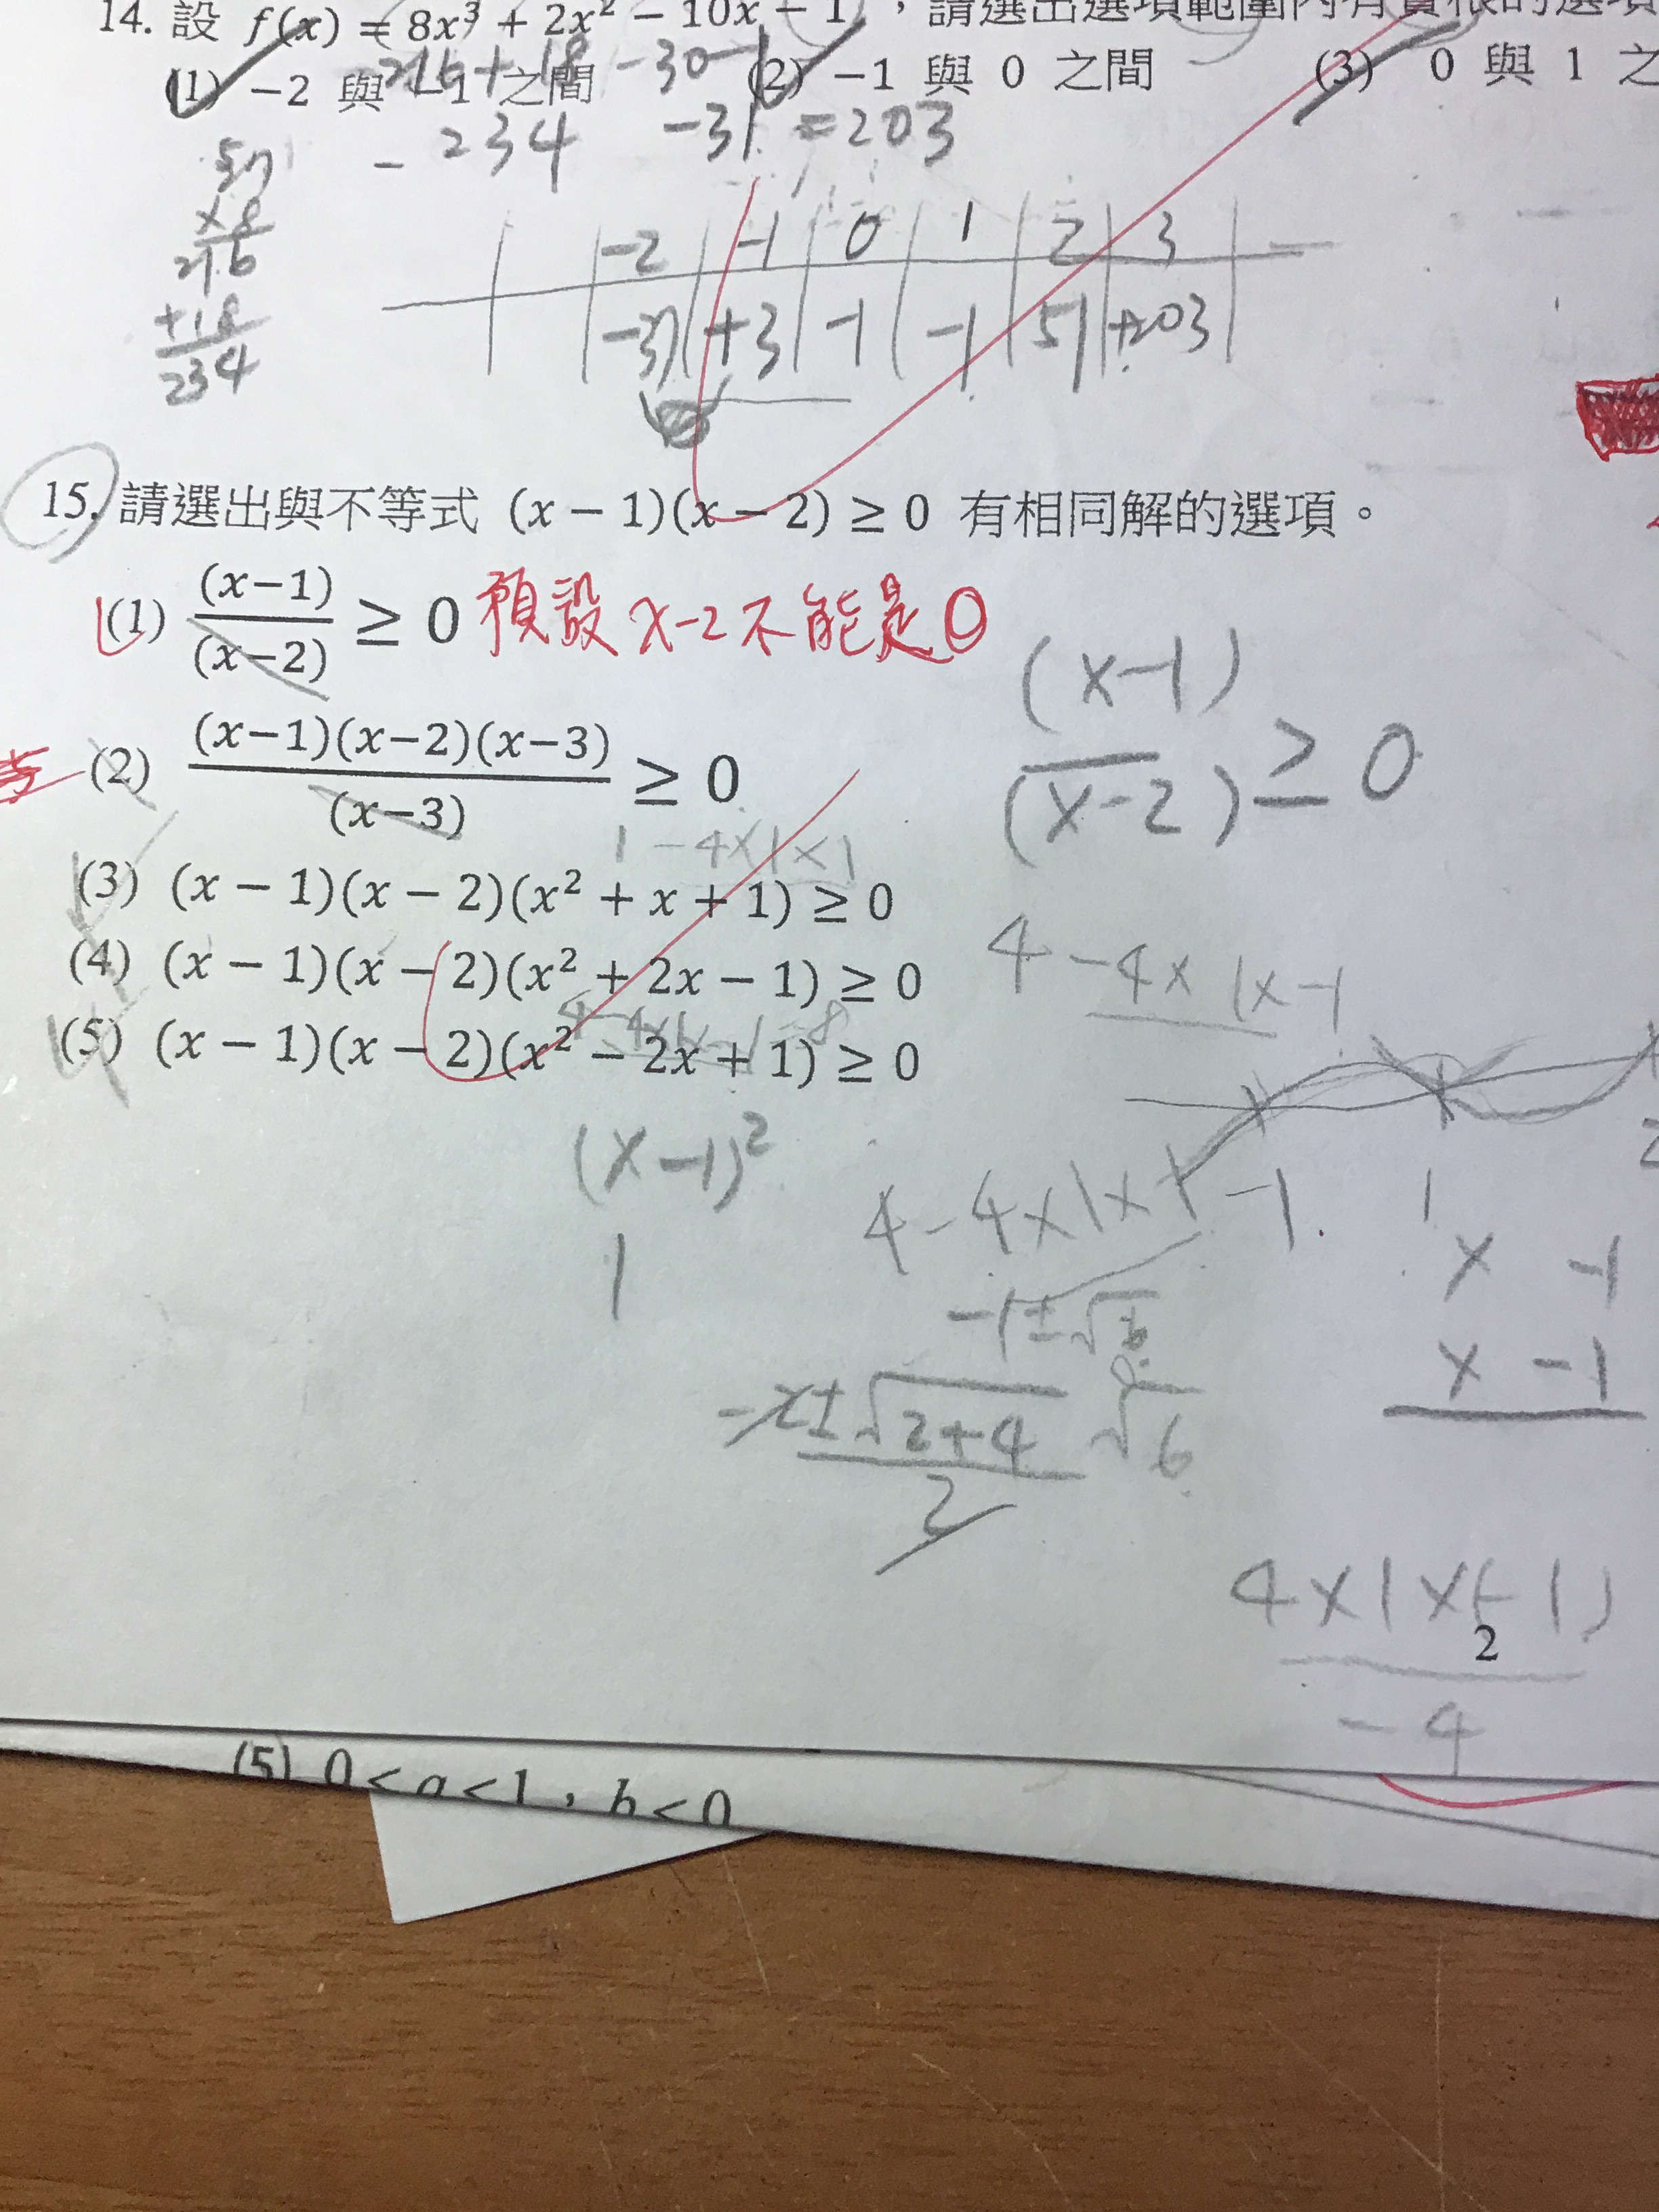 14. 設 f(x) = 8x³ + 2x² − 10x − 1，請選出選項範圍內有實根的選項
(1) −2 與 −1 之間 (2) −1 與 0 之間 (3) 0 與 1 之
216 + 18 − 30 − 1
− 234 −31 = 203
×8
216
+18
234
−2 −1 0 1 2 3
+3 −1 −1 51 +203
15. 請選出與不等式 (x − 1)(x − 2) ≥ 0 有相同解的選項。
(1) (x−1)/(x−2) ≥ 0 預設 x−2 不能是0
(x−1)/(x−2) ≥ 0
(2) (x−1)(x−2)(x−3)/(x−3) ≥ 0
1 − 4×1×1
(3) (x − 1)(x − 2)(x² + x + 1) ≥ 0
(4) (x − 1)(x − 2)(x² + 2x − 1) ≥ 0
4 − 4×1×−1
(5) (x − 1)(x − 2)(x² − 2x + 1) ≥ 0
(x−1)²
1
4 − 4×1× −1
1
2
x −1
x −1
−1±√6
√2+4
2
√6
4×1×(−1)
−4
2
(5) 0 < a < 1，b < 0